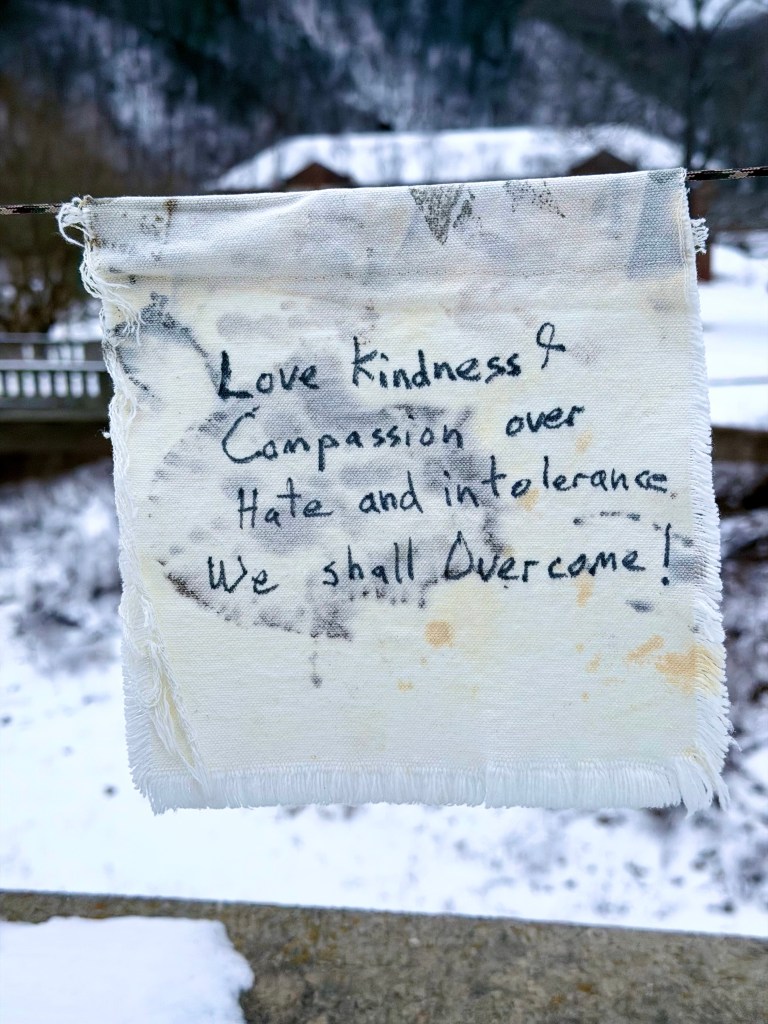 Love kindness &
Compassion over
Hate and intolerance.
We shall Overcome!